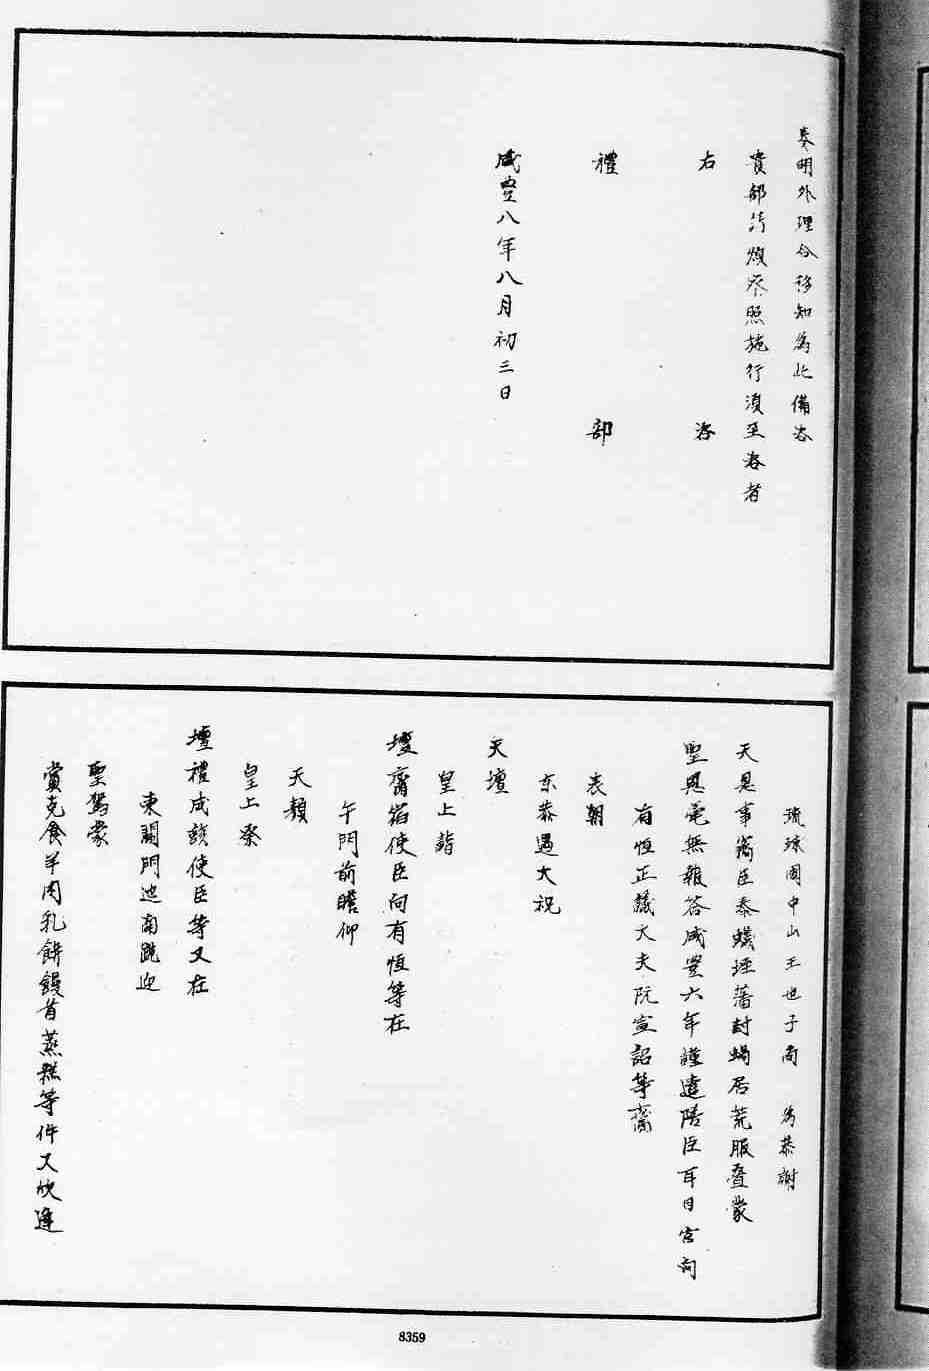 奏明外理合移知為此備咨
貴部請煩察照施行湏至咨者
右 咨
禮 部
咸豐八年八月初三日
琉球國中山王世子尚 為恭謝
天恩事竊臣泰蟻垤藩封蝸居荒服疊蒙
聖恩毫無報答咸豐六年謹遣陪臣耳目官向
有恆正議大夫阮宣詔等齎
表朝
京恭遇大祀
天壇
皇上詣
壇齋宿使臣向有恆等在
午門前瞻仰
天顏
皇上祭
壇禮成該使臣等又在
東闕門迤南跪迎
聖駕蒙
賞克食羊肉乳餅饅首蒸糕等件又欣逢
8359